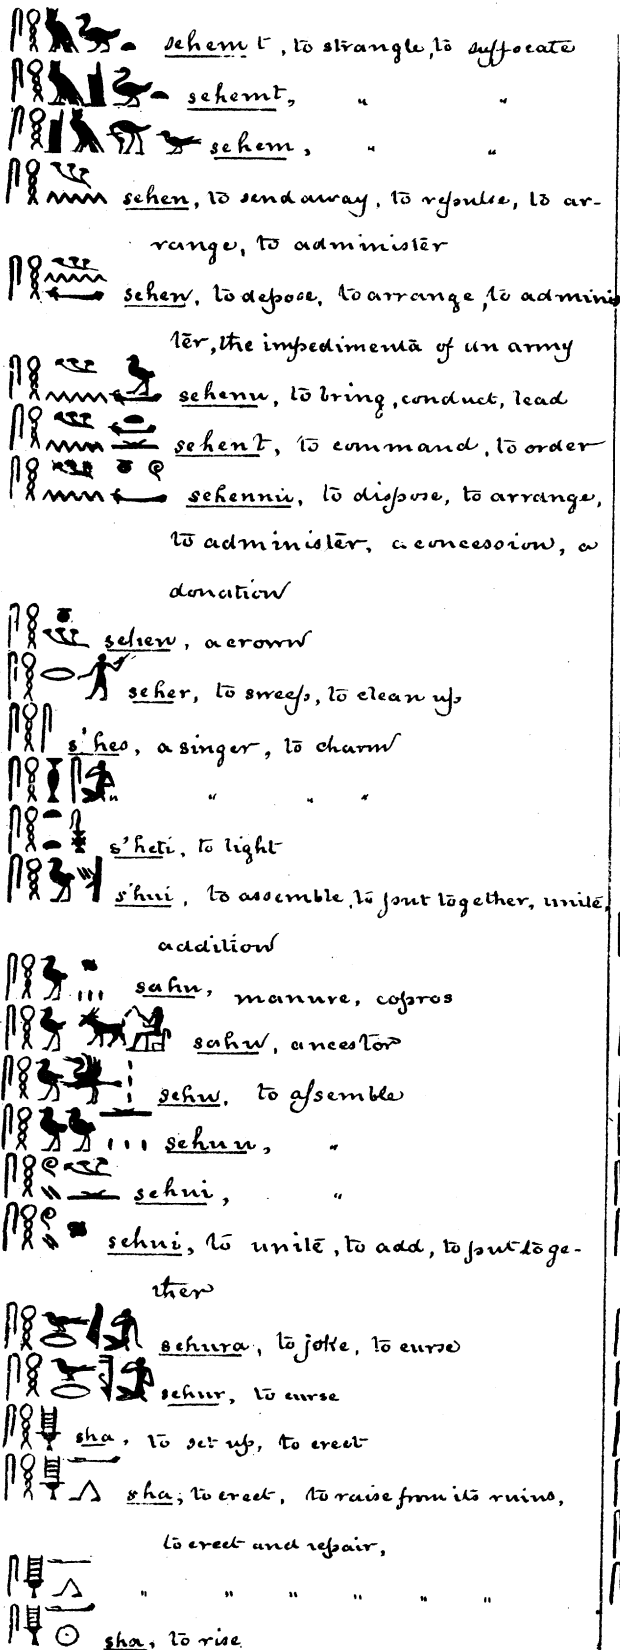 sehemt, to strangle, to suffocate
sehemt, " "
sehem, " "
sehen, to send away, to repulse, to ar-
range, to administer
sehen, to depose, to arrange, to adminis
ter, the impedimenta of an army
sehenu, to bring, conduct, lead
sehent, to command, to order
sehennu, to dispose, to arrange,
to administer, a concession, a
donation
sehen, a crown
seher, to sweep, to clean up
s'hes, a singer, to charm
" " "
s'heti, to light
s'hui, to assemble, to put together, unite,
addition
sahu, manure, copros
sahu, ancestor
sehu, to assemble
sehuu, "
sehui, "
sehui, to unite, to add, to put toge-
ther
sehura, to joke, to curse
sehur, to curse
sha, to set up, to erect
sha, to erect, to raise from its ruins,
to erect and repair,
" " " " " "
sha, to rise